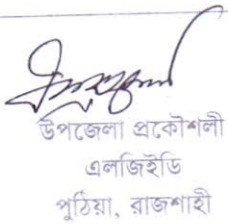 উপজেলা প্রকৌশলী
এলজিইডি
পুঠিয়া, রাজশাহী